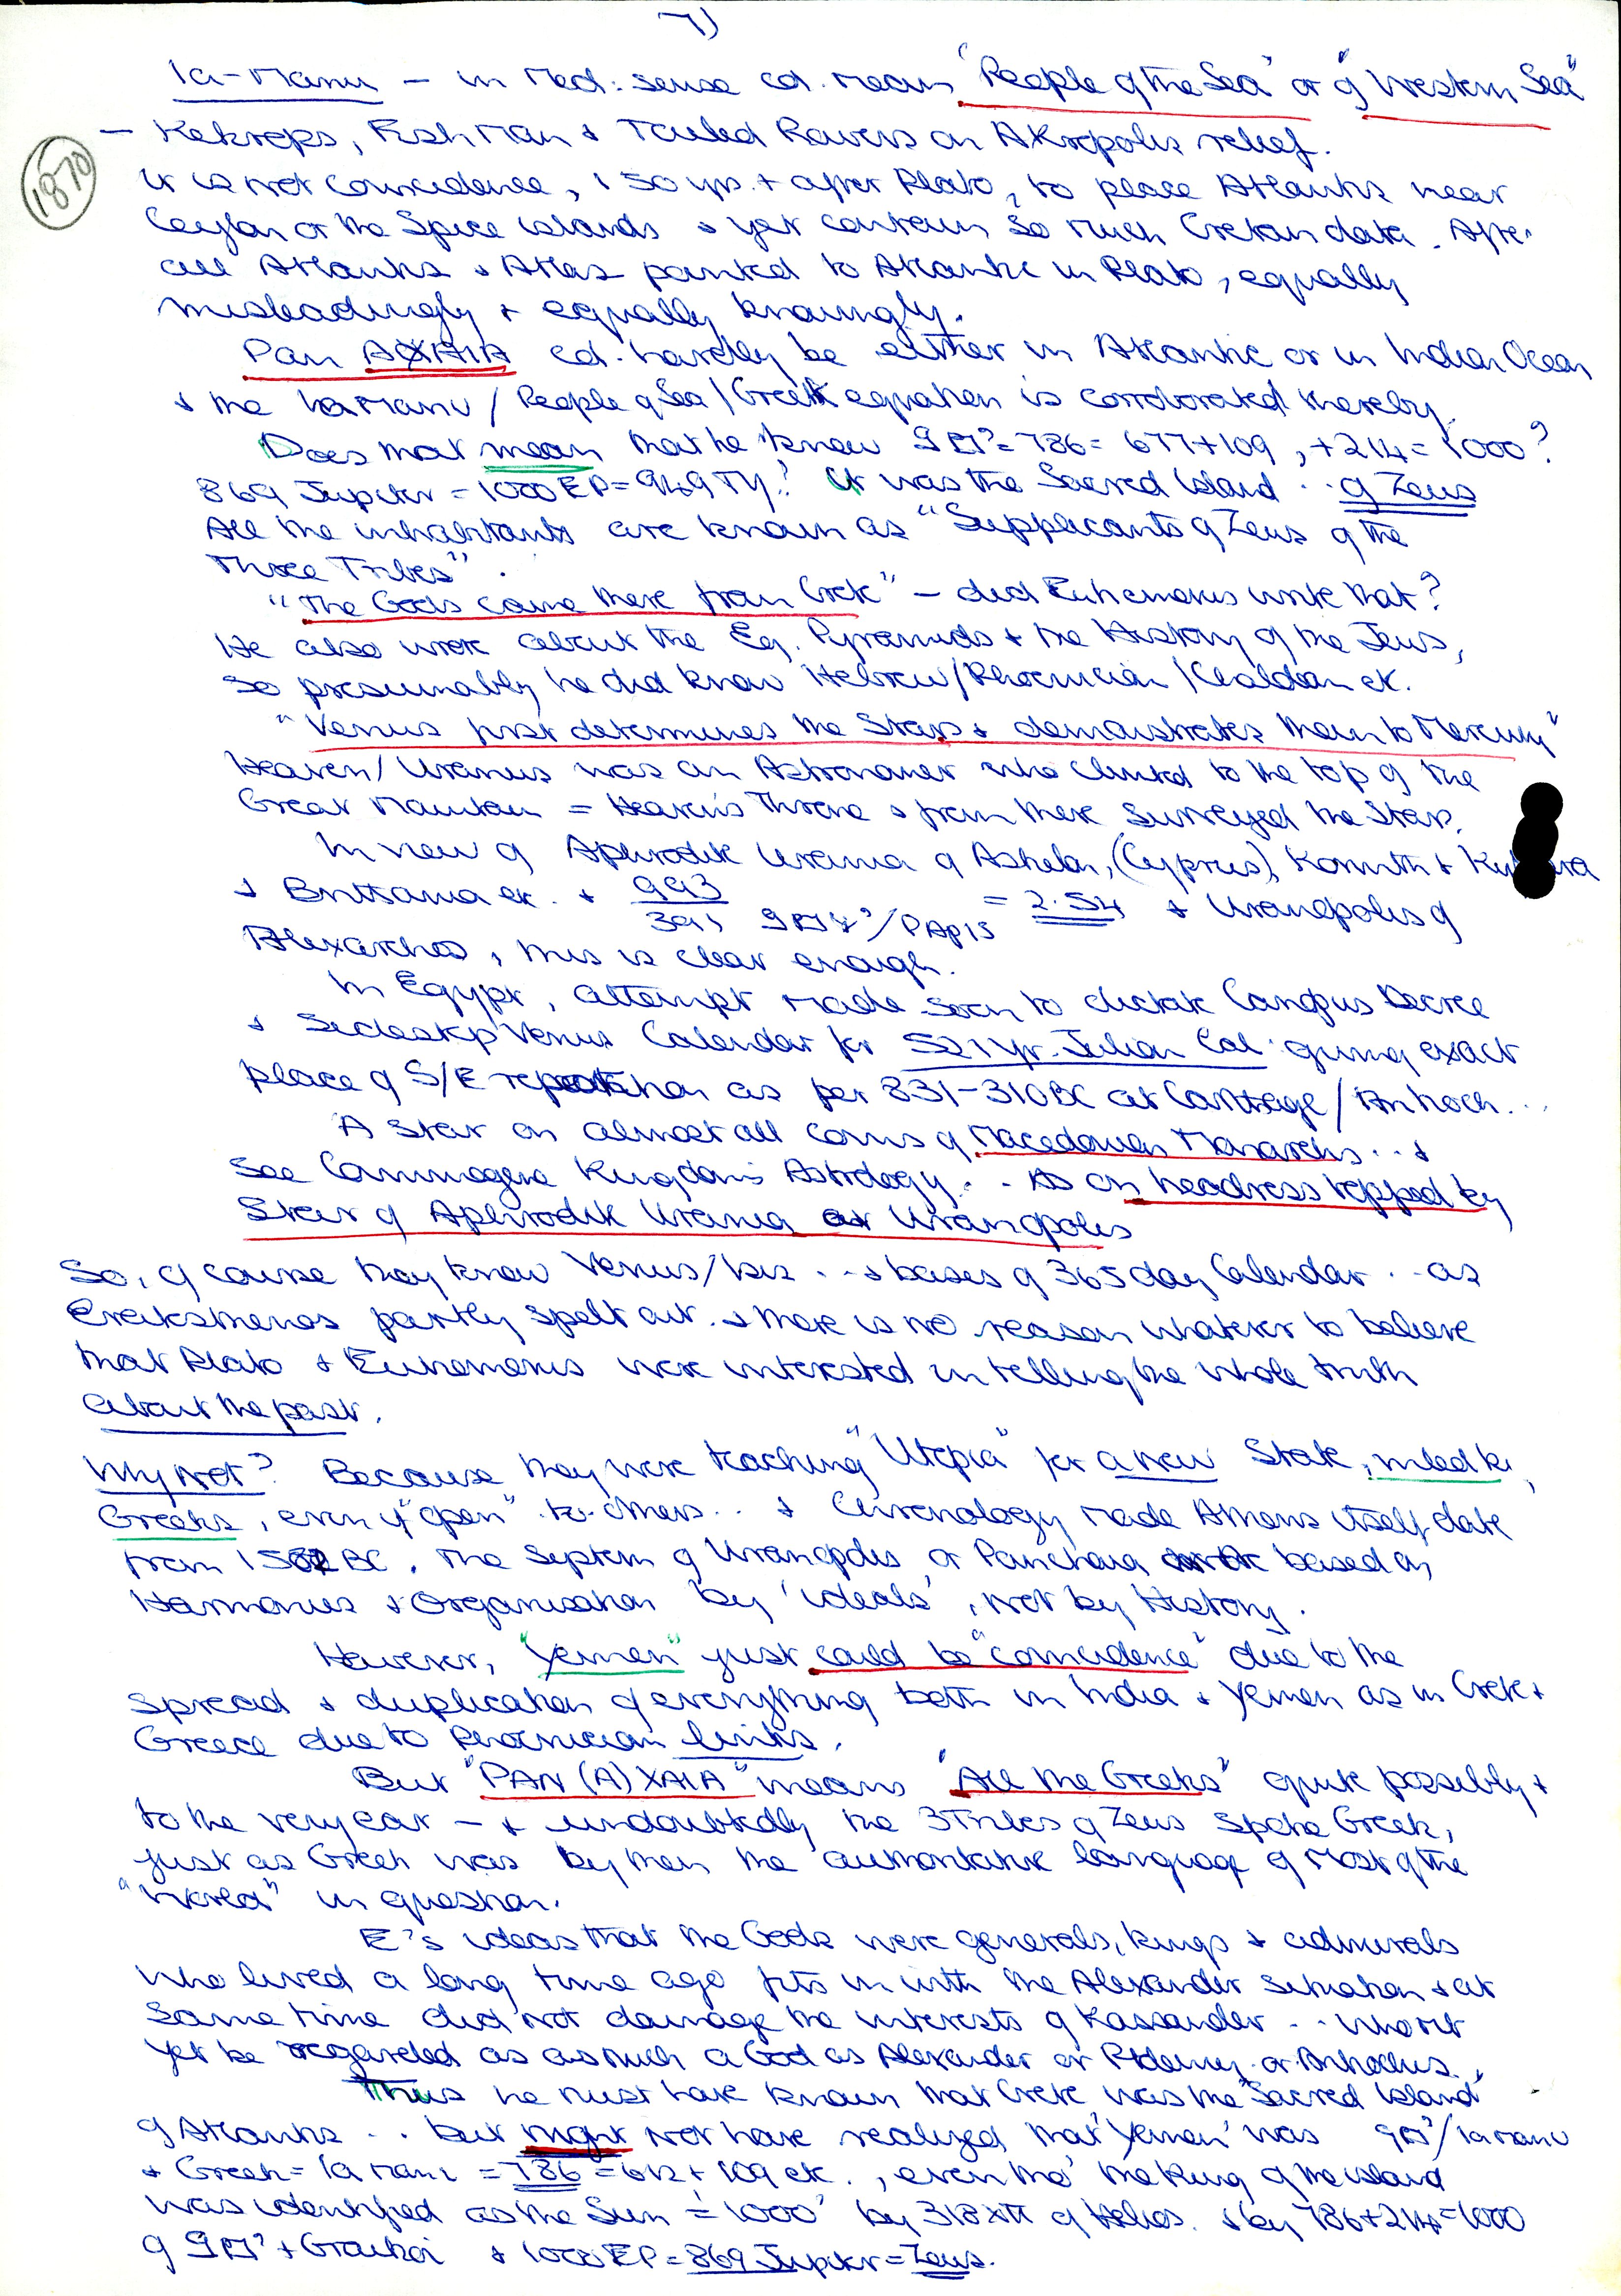 7)
Ia-Manu – in Med: sense cd. mean 'People of the Sea' or "of Western Sea"
– Kekrops, Fish Man & Tailed Ravers on AKropolis relief.
1870
It is not coincidence, 150 yrs. + after Plato, to place Atlantis near
Ceylon or the Spice islands & yet contain so much Cretan data. After
all Atlantis & Atlas pointed to Atlantic in Plato, equally
misleadingly & equally knowingly.
Pan AXAIA cd. hardly be either in Atlantic or in Indian Ocean
& the Ia Manu / People of Sea / Greek equation is corroborated thereby.
Does that mean that he knew = 786 = 677+109, +214 = 1000?
869 Jupiter = 1000 EP = 949 TY! It was the Sacred Island .. of Zeus
All the inhabitants are known as "Supplicants of Zeus of the
Three Tribes".
"The Gods came there from Crete" – did Euhemerus write that?
He also wrote about the Eg. Pyramids & the History of the Jews,
so presumably he did know Hebrew/Phoenician/Chaldean etc.
"Venus first determines the Stars & demonstrates them to Mercury"
Heaven/Uranus was an Astronomer who climbed to the top of the
Great Mountain = Heaven's Throne & from there surveyed the Stars.
In view of Aphrodite Urania of Askelon, (Cyprus), Korinth &
& Brittania etc. + 993
391 /PApis = 2.54 & Uranopolis of
Alexarchos, this is clear enough.
In Egypt, attempt made soon to dictate Canopus Decree
& Venus Calendar for 521 yr. Julian Cal. giving exact
place of S/E repetition as per 831-310 BC at Carthage/Antioch...
A Star on almost all coins of Macedonian Monarchs .. &
See Commagene Kingdom's Astrology .. As on headress topped by
Star of Aphrodite Urania at Uranopolis
So, of course they knew Venus/Isis .. & bases of 365 day Calendar .. as
Eratosthenes partly spelt out. & there is no reason whatever to believe
that Plato & Euhemerus were interested in telling the whole truth
about the past.
Why not? Because they were teaching "Utopia" for a new State,
Greeks, even if "open" to others .. & Chronology made Athens itself date
from 1582 BC. The System of Uranopolis or Panchaia based on
Harmonies & Organisation by 'ideals', not by History.
However, "Yemen" just could be "coincidence" due to the
spread & duplication of everything both in India & Yemen as in Crete &
Greece due to Phoenician links.
But "PAN (A) XAIA" means "All the Greeks" quite possibly &
to the very ear – & undoubtedly the 3 Tribes of Zeus spoke Greek,
just as Greek was by then the authoritative language of most of the
"World" in question.
E's ideas that the Gods were generals, kings & admirals
who lived a long time ago fits in with the Alexander situation & at
same time did not damage the interests of Kassander .. who
yet be regarded as as much a God as Alexander or Ptolemy or Antiochus.
Thus he must have known that Crete was the 'Sacred Island'
of Atlantis .. but might not have realized that 'Yemen' was /Ia Manu
& Greek = Ia Manu = 786 = 612 + 109 etc., even tho' the King of the island
was identified as the Sun = '1000' by 318 x π of Helios. & by 786+214=1000
of + Graikoi & 1000 EP = 869 Jupiter = Zeus.